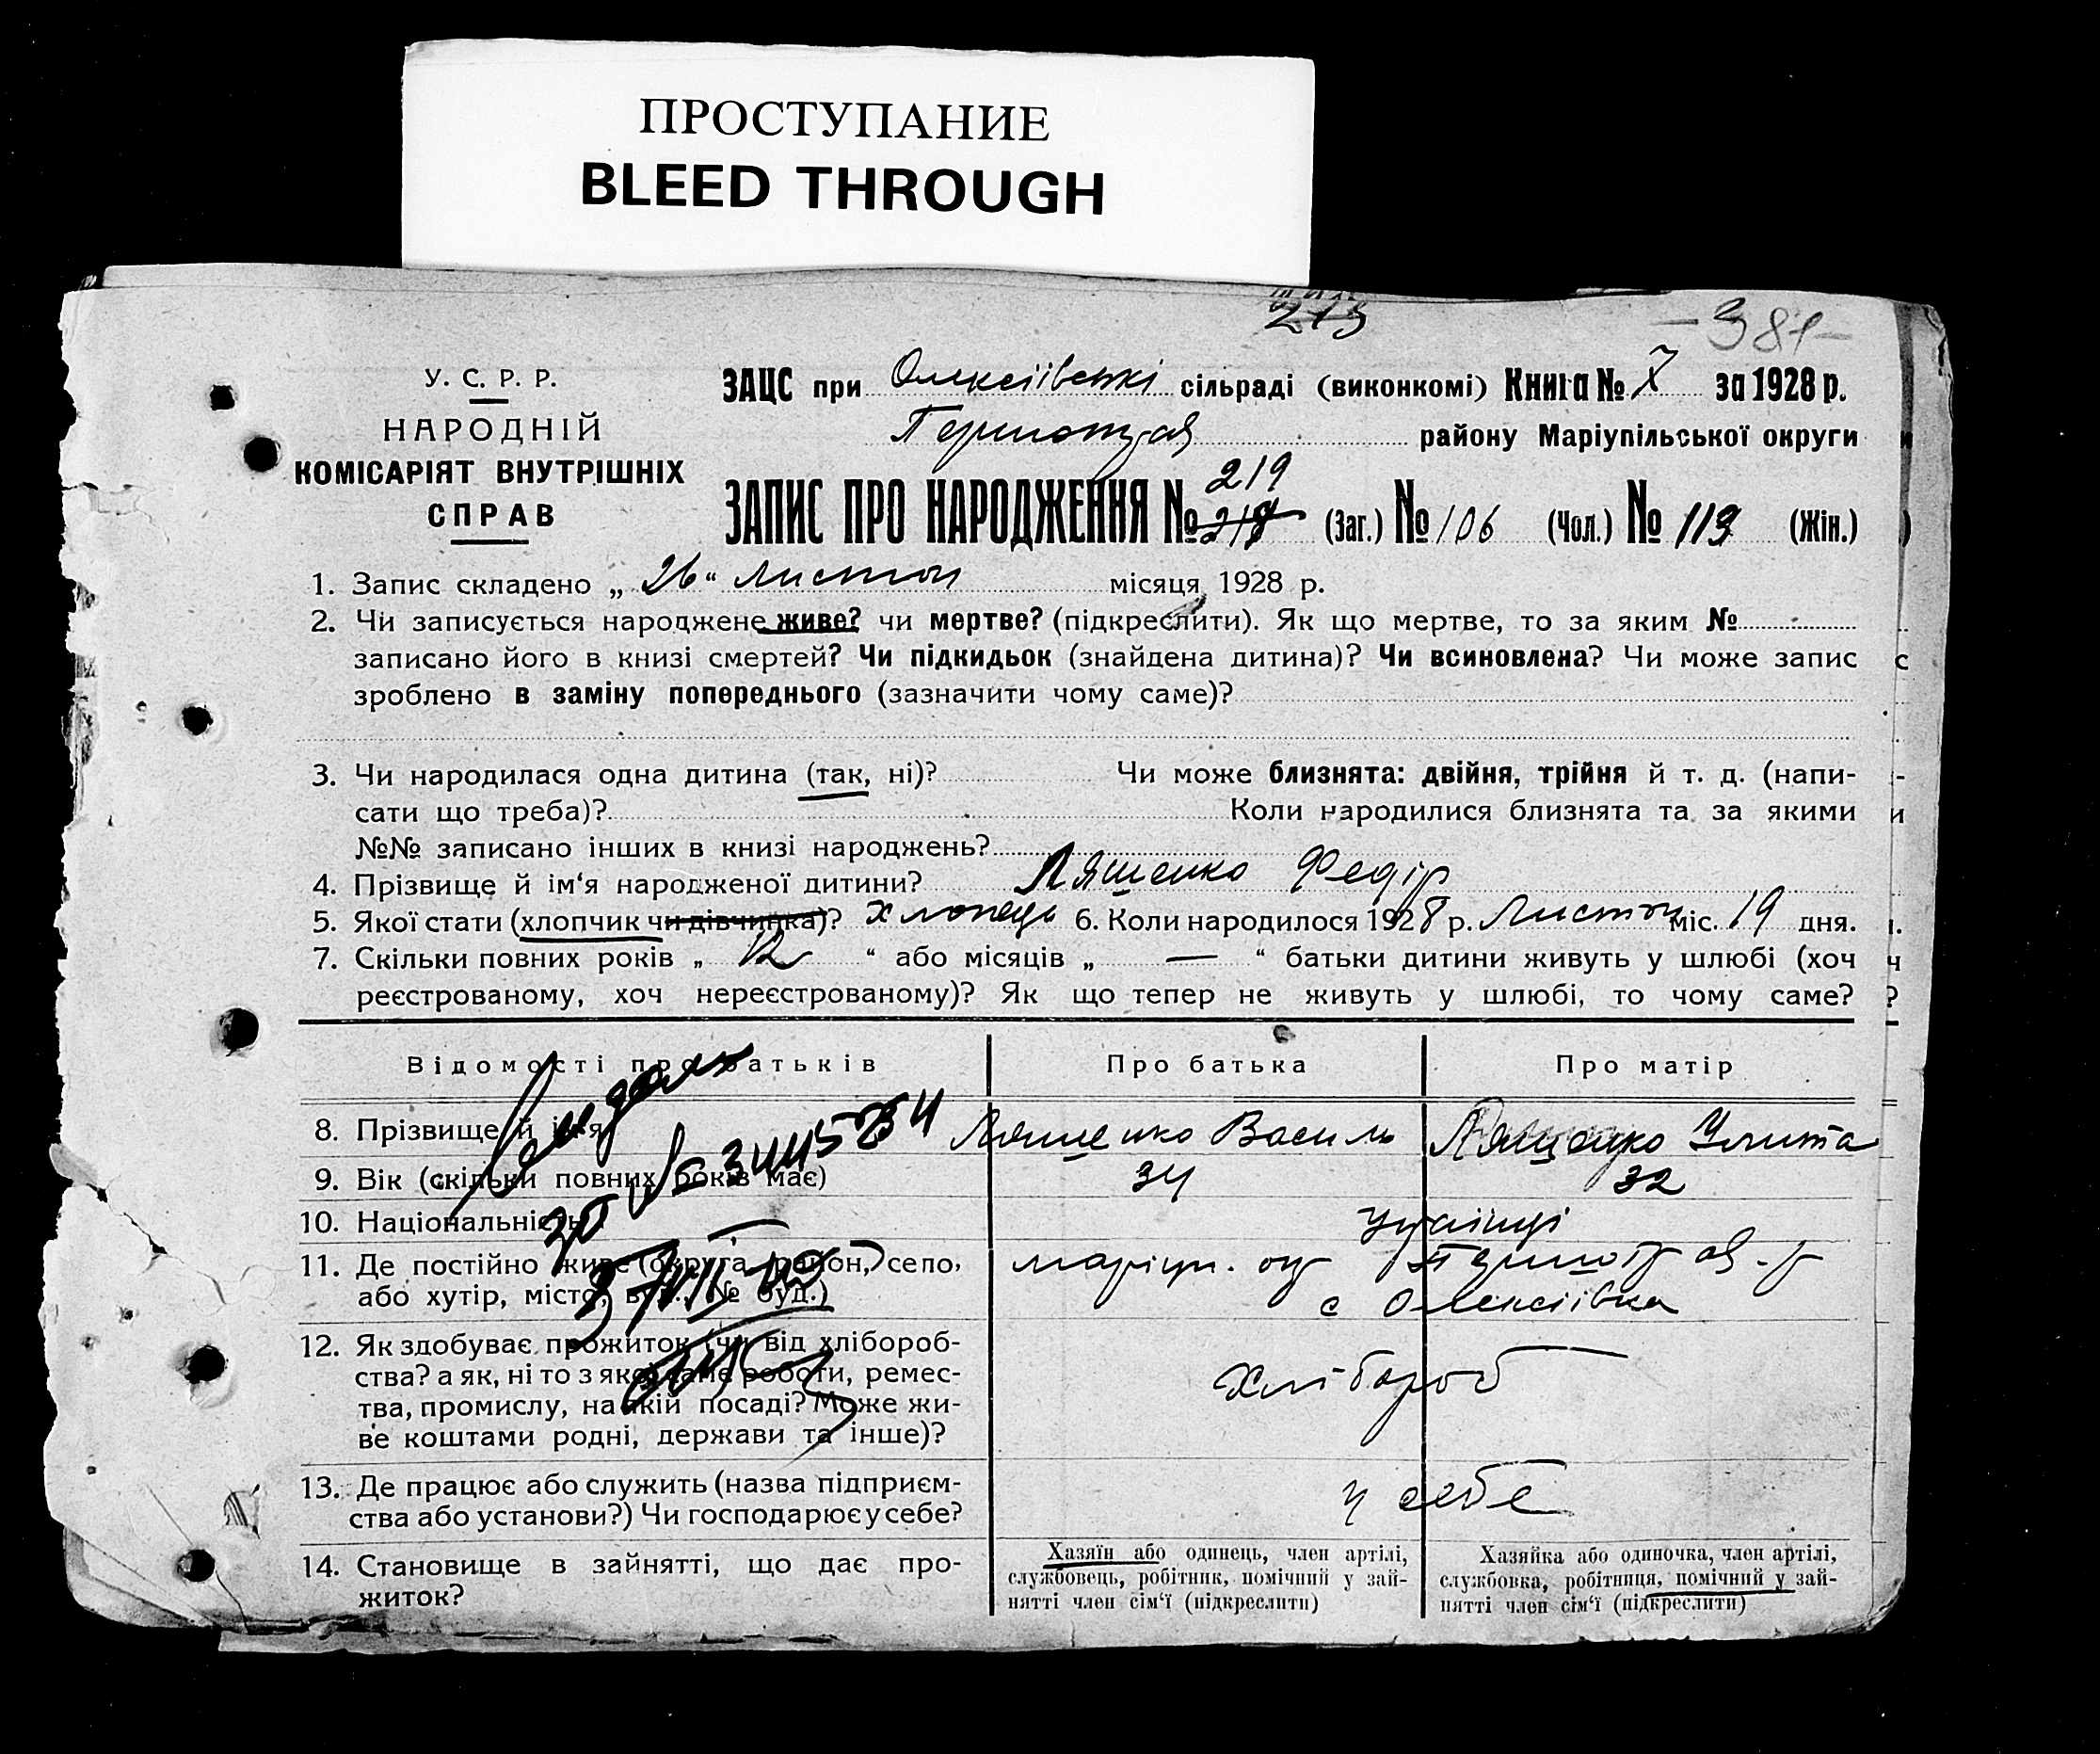 ПРОСТУПАНИЕ
BLEED THROUGH
213
-381-
У. С. Р. Р.
НАРОДНІЙ
КОМІСАРІЯТ ВНУТРІШНІХ
СПРАВ
ЗАЦС при Олексіївські сільраді (виконкомі) Книга № 7 за 1928 р.
району Маріупільської округи
219
ЗАПИС ПРО НАРОДЖЕННЯ № 218 (Заг.) № 106 (Чол.) № 113 (Жін.)
1. Запис складено „ 26 " листоп місяця 1928 р.
2. Чи записується народжене живе? чи мертве? (підкреслити). Як що мертве, то за яким №
записано його в книзі смертей? Чи підкидьок (знайдена дитина)? Чи всиновлена? Чи може запис
зроблено в заміну попереднього (зазначити чому саме)?
3. Чи народилася одна дитина (так, ні)? Чи може близнята: двійня, трійня й т. д. (напи-
сати що треба)? Коли народилися близнята та за якими
№№ записано інших в книзі народжень?
4. Прізвище й ім‘я народженої дитини? Ляшенко Федір
5. Якої стати (хлопчик чи дівчинка)? Хлопець 6. Коли народилося 1928 р. Листоп міс. 19 дня.
7. Скільки повних років „ 12 “ або місяців „ — “ батьки дитини живуть у шлюбі (хоч
реєстрованому, хоч нереєстрованому)? Як що тепер не живуть у шлюбі, то чому саме?
Відомості про батьків Про батька Про матір
8. Прізвище й ім‘я Ляшенко Василь Ляшенко Улита
9. Вік (скільки повних років має) 34 32
10. Національність українці
11. Де постійно живе (округа, район, село, маріуп. окр
або хутір, місто, вул., № буд.) с Олексіївка
12. Як здобуває прожиток (чи від хлібороб-
ства? а як, ні то з якої саме роботи, ремес-
тва, промислу, на якій посаді? Може жи-
ве коштами родні, держави та інше)? Хлібороб
13. Де працює або служить (назва підприєм-
ства або установи?) Чи господарює у себе? у себе
14. Становище в зайнятті, що дає про-
житок?
Хазяїн або одинець, член артілі,
службовець, робітник, помічний у зай-
нятті член сім‘ї (підкреслити)
Хазяйка або одиночка, член артілі,
службовка, робітниця, помічний у зай-
нятті член сім‘ї (підкреслити)